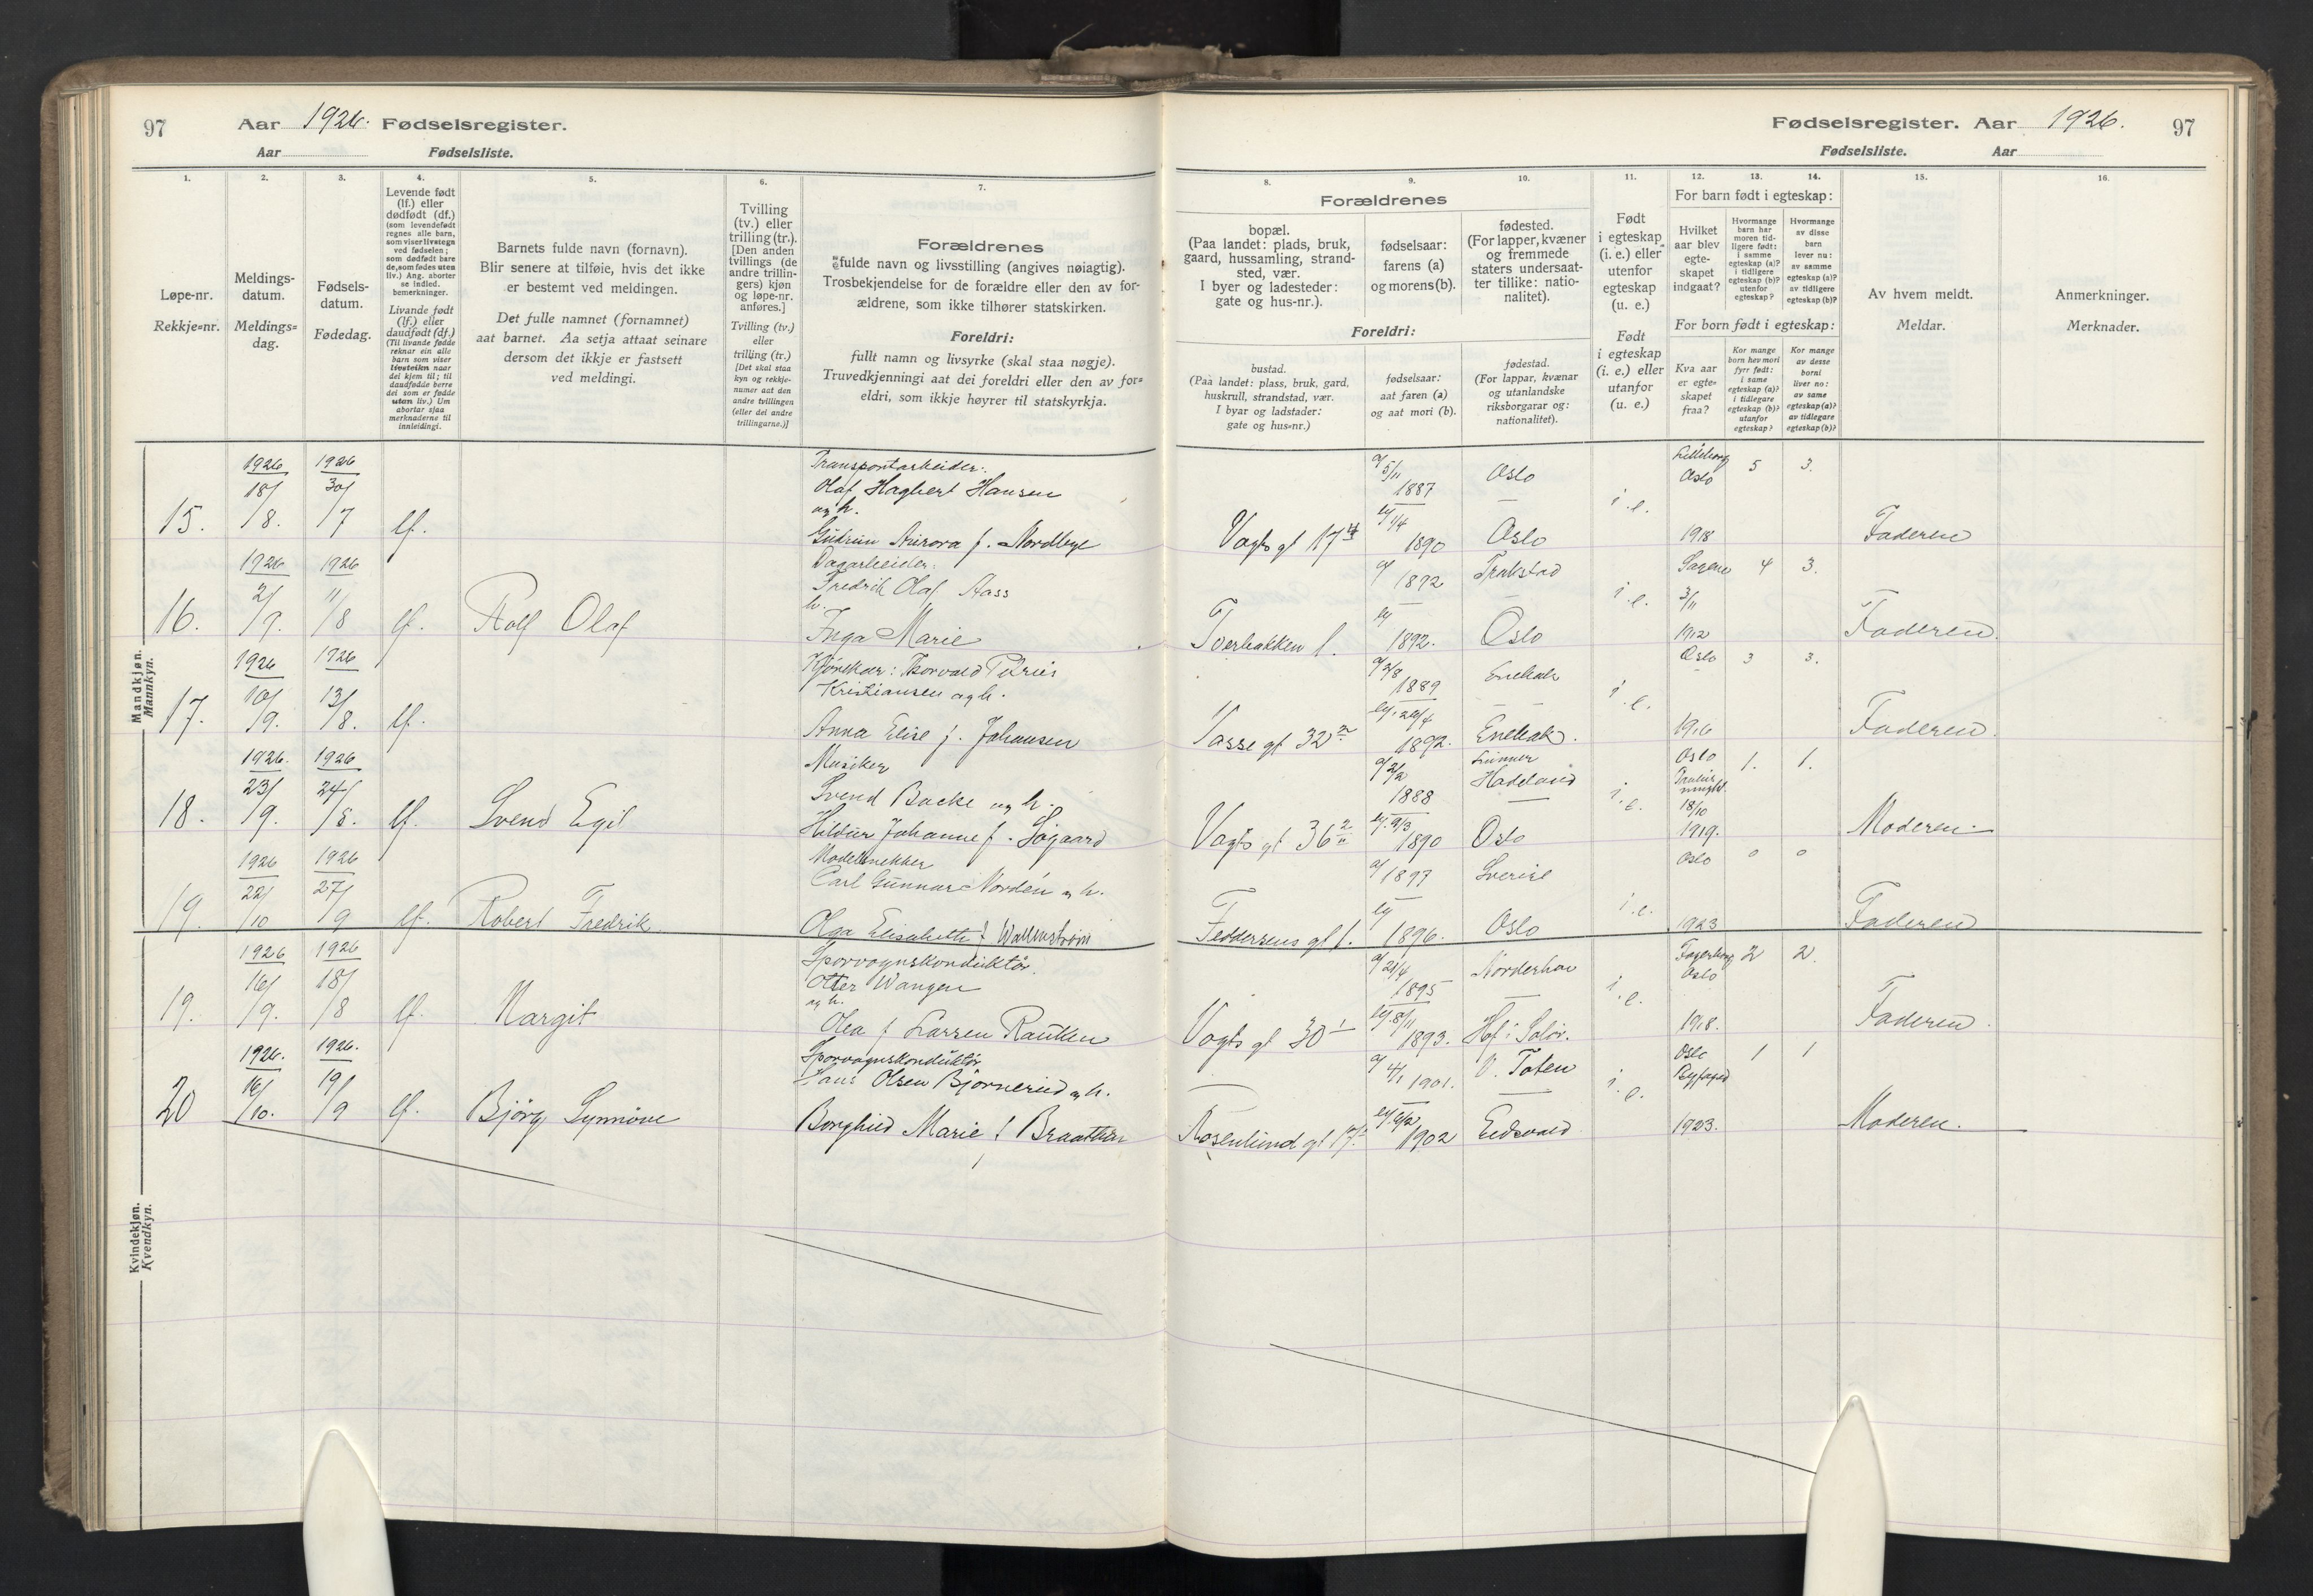 97 Aar 1926. Fødselsregister.
Aar Fødselsliste.
Fødselsregister. Aar 1926. 97
Fødselsliste. Aar
1.
Løpe-nr.
Rekkje-nr.
2.
Meldings-
datum.
Meldings-
dag.
3.
Fødsels-
datum.
Fødedag.
4.
Levende født
(lf.) eller
dødfødt (df.)
(som levendefødt
regnes alle barn,
som viser livstegn
ved fødselen;
som dødfødt bare
de, som fødes uten
liv.) Ang. aborter
se indled.
bemerkninger.
Livande født
(lf.) eller
daudfødt (df.)
(Til livande fødde
reknar ein alle
barn som viser
livsteikn naar
dei kjem til; til
daudfødde berre
dei som er fødde
utan liv.) Um
abortar sjaa
merknaderne til
innleidingi.
5.
Barnets fulde navn (fornavn).
Blir senere at tilføie, hvis det ikke
er bestemt ved meldingen.
Det fulle namnet (fornamnet)
aat barnet. Aa setja attaat seinare
dersom det ikkje er fastsett
ved meldingi.
6.
Tvilling
(tv.) eller
trilling (tr.).
[Den anden
tvillings (de
andre trillin-
gers) kjøn
og løpe-nr.
anføres.]
Tvilling (tv.)
eller
trilling (tr.)
[Det skal staa
kyn og rekkje-
numer aat den
andre tvillingen
(eller dei andre
trillingarne.)]
7.
Forældrenes
fulde navn og livsstilling (angives nøiagtig).
Trosbekjendelse for de forældre eller den av for-
ældrene, som ikke tilhører statskirken.
Foreldri:
fullt namn og livsyrke (skal staa nøgje).
Truvedkjenningi aat dei foreldri eller den av for-
eldri, som ikkje høyrer til statskyrkja.
Forældrenes
8.
bopæl.
(Paa landet: plads, bruk,
gaard, hussamling, strand-
sted, vær.
I byer og ladesteder:
gate og hus-nr.).
Foreldri:
bustad.
(Paa landet: plass, bruk, gard,
huskrull, strandstad, vær.
I byar og ladstader:
gate og hus-nr.)
9.
fødselsaar:
farens (a)
og morens (b).
fødselsaar:
aat faren (a)
og aat mori (b).
10.
fødested.
(For lapper, kvæner
og fremmede
staters undersaat-
ter tillike: natio-
nalitet).
fødestad.
(For lappar, kvænar
og utanlandske
riksborgarar og:
nationalitet).
11.
Født
i egteskap
(i. e.) eller
utenfor
egteskap
(u. e.)
Født
i egteskap
(i. e.) eller
utanfor
(u. e.)
12. 13. 14.
For barn født i egteskap:
Hvilket
aar blev
egte-
skapet
indgaat?
Hvormange
barn har
moren tid-
ligere født:
i samme
egteskap (a)?
i tidligere
egteskap (b)?
utenfor
egteskap?
Hvormange
av disse
barn
lever nu:
av samme
egteskap (a)?
av tidligere
egteskap (b)?
For born født i egteskap:
Kva aar
er egte-
skapet
fraa?
Kor mange
born hev mori
fyrr født:
i same
egteskap (a)?
i tidlegare
egteskap (b)?
utanfor
egteskap?
Kor mange
av desse
borni
liver no:
av same
egteskap (a)?
av tidlegare
egteskap (b)?
15.
Av hvem meldt.
Meldar.
16.
Anmerkninger.
Merknader.
Mandkjøn.
Mannkyn.
15. 1926 18/8. 1926 30/7 lf.
Transportarbeider.
Olaf Hagbert Hansen
og h.
Gudrun Aurora f. Nordbye
Vogts gt 17 4
a/ 5/11 1887 Oslo
b/ 1/4 1890 Oslo
i. e. Lilleborg Oslo 1918 5 3. Faderen
16. 1926 2/9. 1926 11/8 lf. Rolf Olaf
Dagarbeider.
Fredrik Olaf Aass
h.
Inga Marie
Torbakken 1.
a/ 1892
b/ 1892. Oslo
i. e. Sagene 3/11 1912 4 3. Faderen.
17. 1926 10/9. 1926 13/8. lf.
Thorvald
Kristiansen og h.
Anna Elise f. Johansen
32
1889 Enebak
b/ 26/4 1892. Enebak.
i. e. Oslo 1916 3 3. Faderen.
18. 1926. 23/9. 1926 24/8. lf. Svend Egil
Musiker
Svend Backe og h.
Hildur Johanne f. Søgaard
Vogts gt 36 2
a/ 1888 Lunner Hadeland
b/ 9/3 1890 Oslo
i. e. Oslo 18/10 1919. 1. 1. Moderen.
19. 1926 22/10 1926 27/9 lf. Robert Fredrik
Modelsnekker
Carl Gunnar Nordén og h.
Olga Elisabeth f Wallenstrøm
Feddersens gt 1.
a/ 1897 Sverige
b/ 1896. Oslo
i. e. Oslo 1923 0 0 Faderen
Kvindekjøn.
Kvendkyn.
19. 1926 16/9. 1926 18/8 lf. Margit
Sporvognskonduktør.
Otter Wangen
og h.
Olea f Larsen Rauken
Vogts gt 30 1
a/ 21/4 1895 Norderhov
b/ 8/11 1893. Hof i Solør.
i. e. Fagerborg Oslo 1918. 2 2. Faderen.
20 1926. 16/10. 1926. 19/9 lf. Bjørg Synnøve
Sporvognskonduktør
Hans Olsen Bjørnerud og h.
Borghild Marie f Braathen
Rosenlund gt 17
a/ 4/1 1901. V. Toten
1902 Eidsvold
i. e. Oslo Byfoged 1923. 1 1 Moderen.